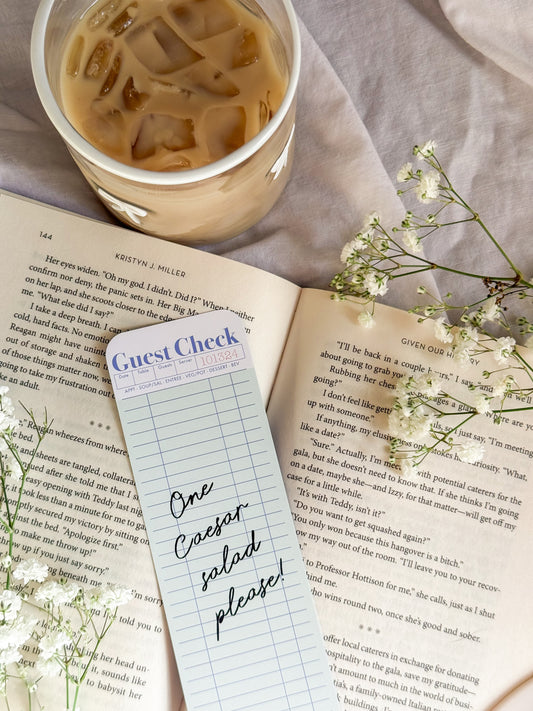 144
KRISTYN J. MILLER
Her eyes widen. "Oh my god, I didn't. Did I?" When I neither
confirm nor deny, the panic sets in. Her Big M
on her lap, and she scoots closer to the ede
me. "What else did I say?"
I take a deep breath. I
cold, hard facts. No emo
Reagan might have been
out of storage and shaken t
of those things mom
going to take my frustration out
an adult.
Reagan wheezes from where
and sheets are tangled, collar
easy opening with Teddy last night
after she told me at
look less than a minute for me to ga
mpromised my victory by sitting on
inst the bed. "Apologize first."
u make me throw up!"
throw up if you just say sorry."
Beneath me
m sorry.
told you
ling her head un-
to babysit her
Guest Check
Date
Table
Guests
Server
101324
APPT - SOUP/SAL - ENTREE - VEG/POT - DESSERT - BEV
One
Caesar
salad
please!
GIVEN OUR H
"I'll be back in a couple hours," I say
about going to grab you
Rubbing her
going?"
I don't feel like
up with someone."
say, just say, "I'm meeting
If anything, my elusive
like a date?"
curiosity. "What,
"Sure." Actually, I'm meeting with potential caterers for the
gala, but she doesn't need to know that. If she thinks I'm going
on a date, maybe she—and Izzy, for that matter—will get off my
case for a little while.
"It's with Teddy, isn't it?"
"Do you want to get squashed again?"
"You only won because this hangover is a bitch."
my way out of the room. "I'll leave you to your recov-
to Professor Hottison for me," she calls, just as I shut
me.
who wins round two, once she's good and sober.
offer local caterers in exchange for donating
hospitality to the gala, save my gratitude—
n't amount to much in the world of busi-
s, a family-owned Italian
buildings. I'm